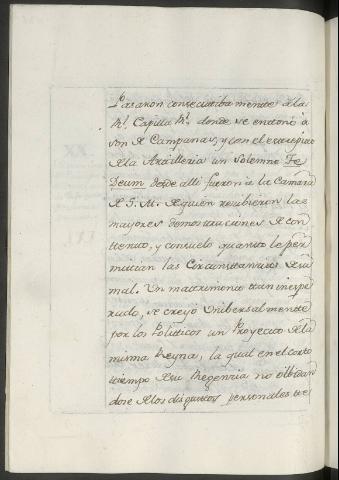 Pasaron consecutiba mente à la
Rl. Capilla Rl. donde se entonó à
son de Campanas, y con el estrepito
de la Artilleria un Solemne Te
Deum desde alli fueron à la Camara
de S. M. de quien recibieron las
mayores demostraciones de con
tento, y consuelo quanto le per
mitian las Circunstancias de su
mal. Un matrimonio tan inespe
rado, se creyó Unibersalmente
por los Politicos un Proyecto de la
misma Reyna, la qual en el corto
tiempo de su Regenzia no olbidan
dose de los disgustos personales te